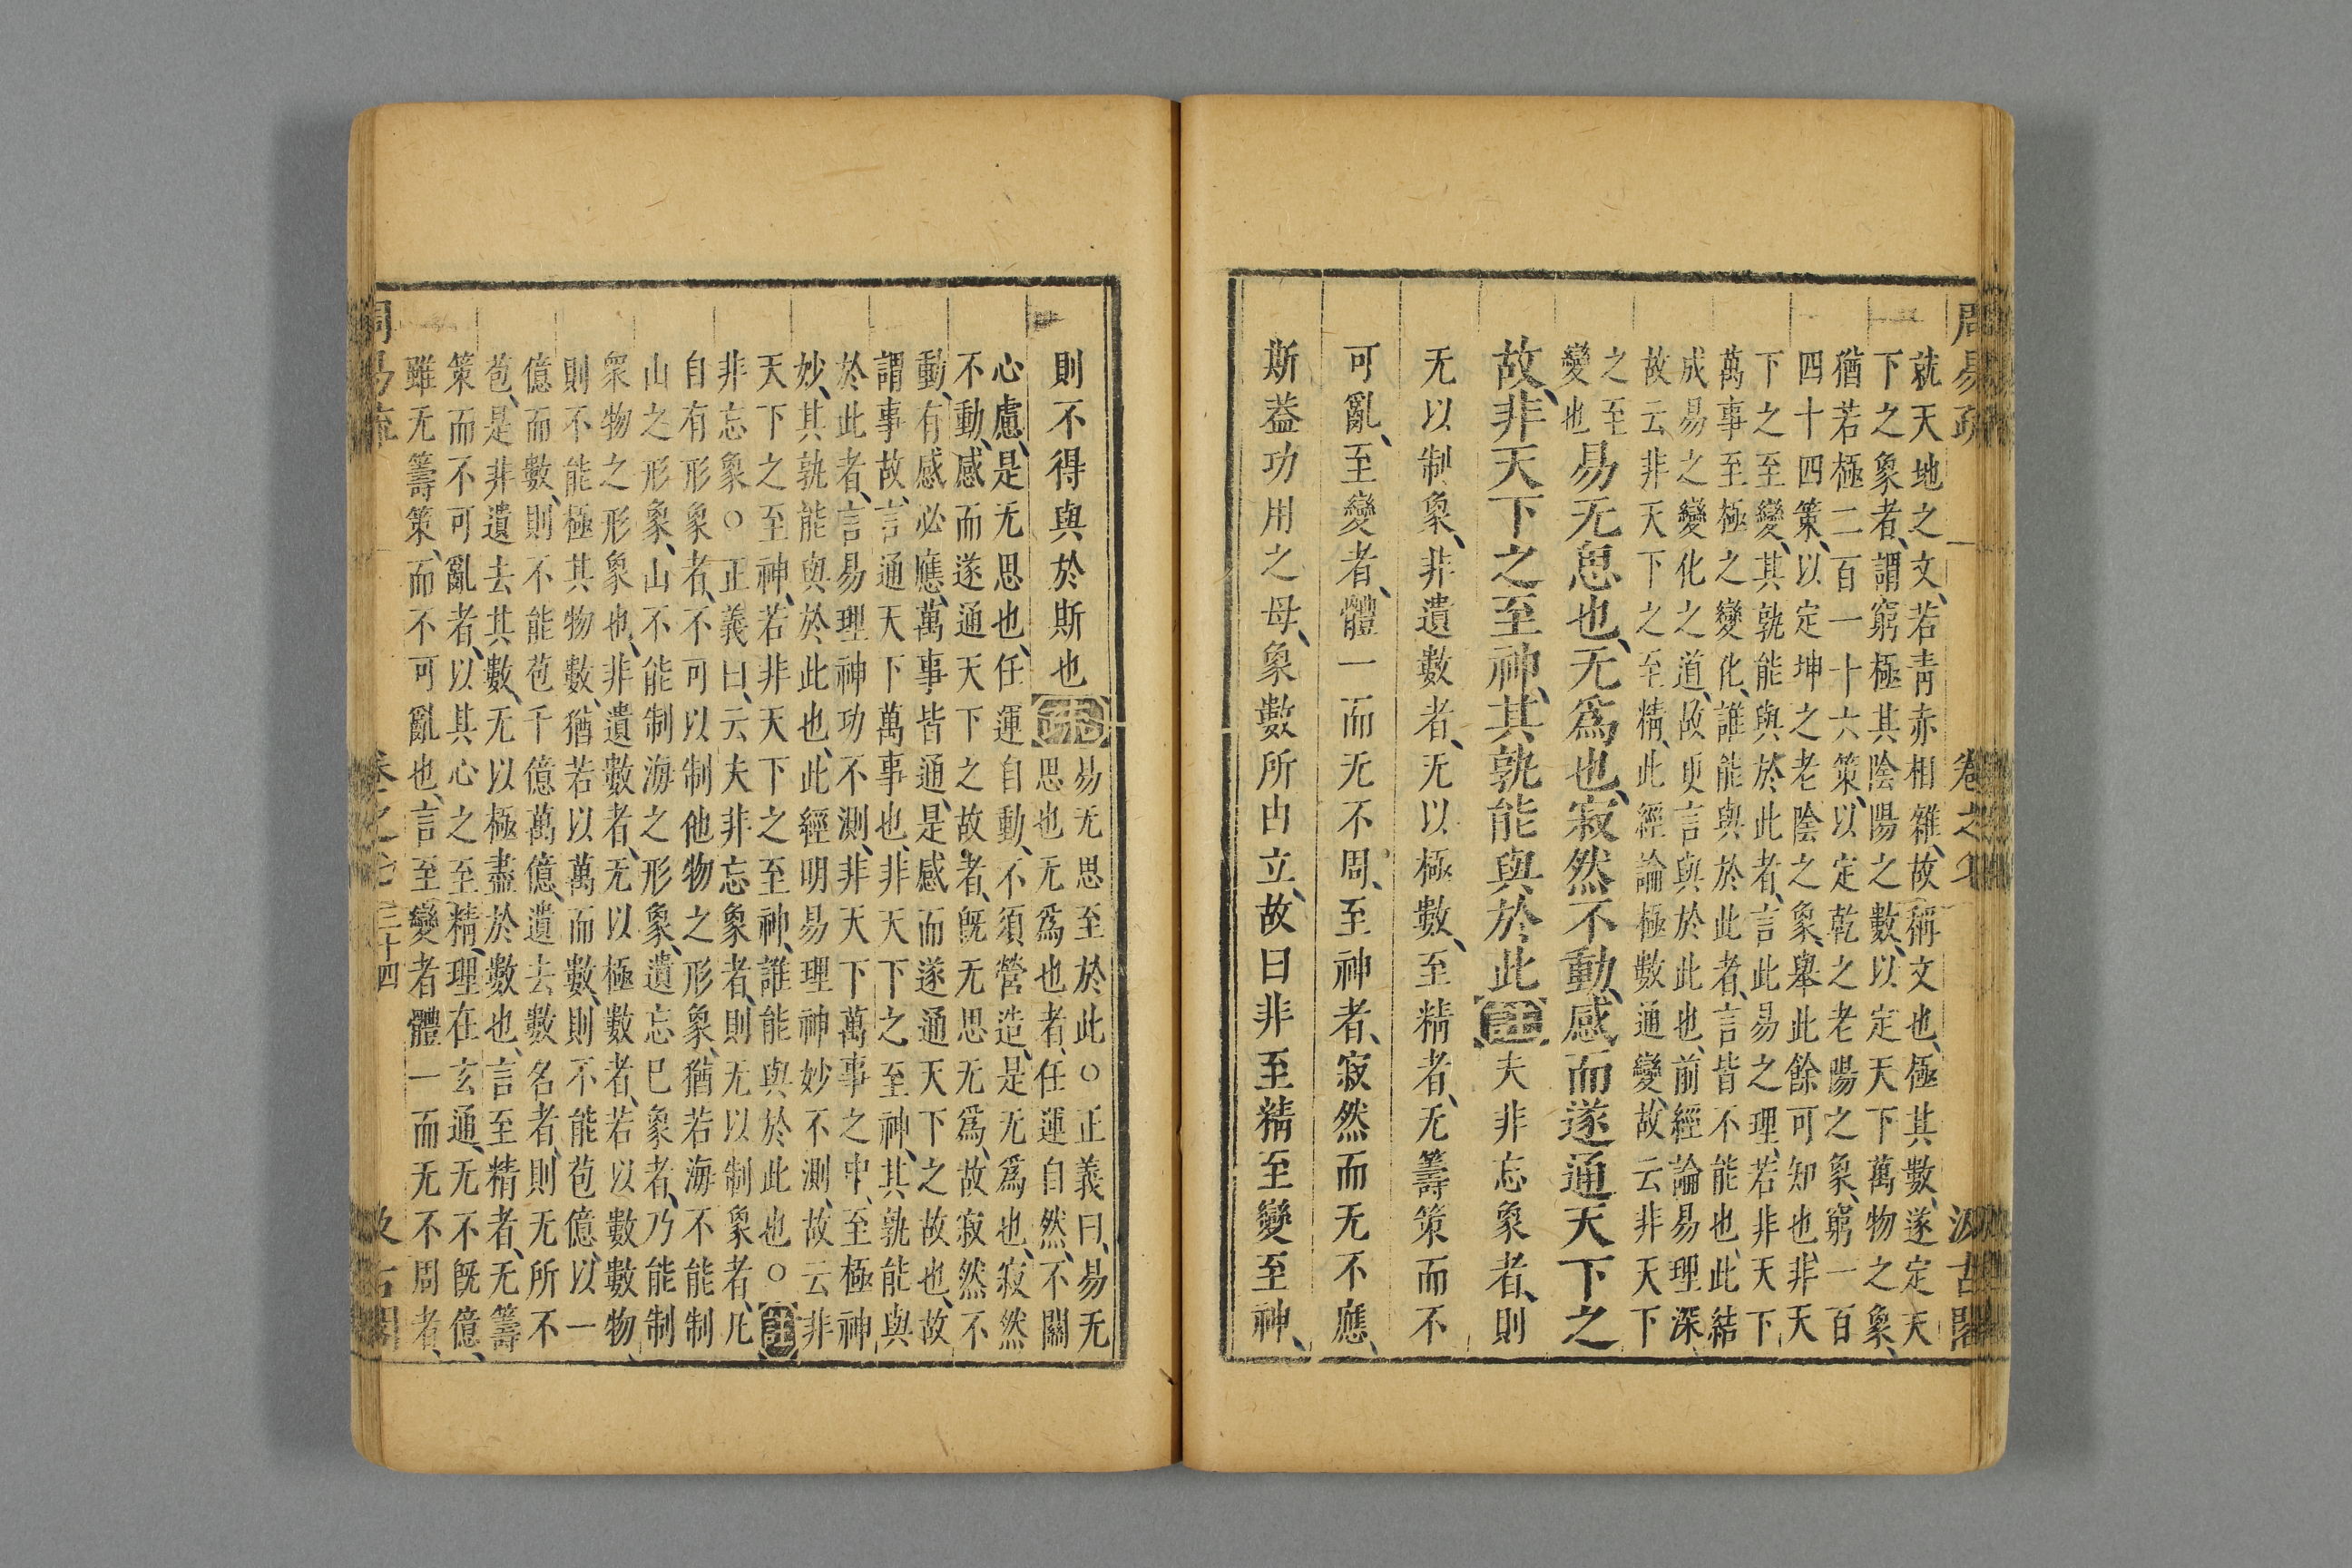 周易疏　卷之七　汲古閣
就天地之文、若青赤相雜、故稱文也、極其數、遂定天
下之象者、謂窮極其陰陽之數、以定天下萬物之象、
猶若極二百一十六策、以定乾之老陽之象、窮一百
四十四策、以定坤之老陰之象、舉此餘可知也、非天
下之至變、其孰能與於此者、言此易之理、若非天下
萬事至極之變化、誰能與於此者、言皆不能也、此結
成易之變化之道、故更言與於此也、前經論易理深、
故云非天下之至精、此經論極數通變、故云非天下
之至
變也
易无思也、无爲也、寂然不動、感而遂通天下之
故、非天下之至神、其孰能與於此註夫非忘象者、則
无以制象、非遺數者、无以極數、至精者、无籌策而不
可亂、至變者、體一而无不周、至神者、寂然而无不應、
斯葢功用之母、象數所由立、故曰非至精至變至神、
則不得與於斯也疏
易无思至於此○正義曰、易无
思也无爲也者、任運自然、不關
心慮、是无思也、任運自動、不須營造、是无爲也、寂然
不動、感而遂通天下之故者、旣无思无爲、故寂然不
動、有感必應、萬事皆通、是感而遂通天下之故也、故
謂事故、言通天下萬事也、非天下之至神、其孰能與
於此者、言易理神功不測、非天下萬事之中、至極神
妙、其孰能與於此也、此經明易理神妙不測、故云非
天下之至神、若非天下之至神、誰能與於此也○註
非忘象○正義曰、云夫非忘象者、則无以制象者、凡
自有形象者、不可以制他物之形象、猶若海不能制
山之形象、山不能制海之形象、遺忘巳象者、乃能制
衆物之形象也、非遺數者、无以極數者、若以數數物、
則不能極其物數、猶若以萬而數、則不能苞億、以一
億而數、則不能苞千億萬億、遺去數名者、則无所不
苞、是非遺去其數、无以極盡於數也、言至精者、无籌
策而不可亂者、以其心之至精、理在玄通、无不旣億、
雖无籌策、而不可亂也、言至變者、體一而无不周者、
周易疏　卷之七　三十四　汲古閣